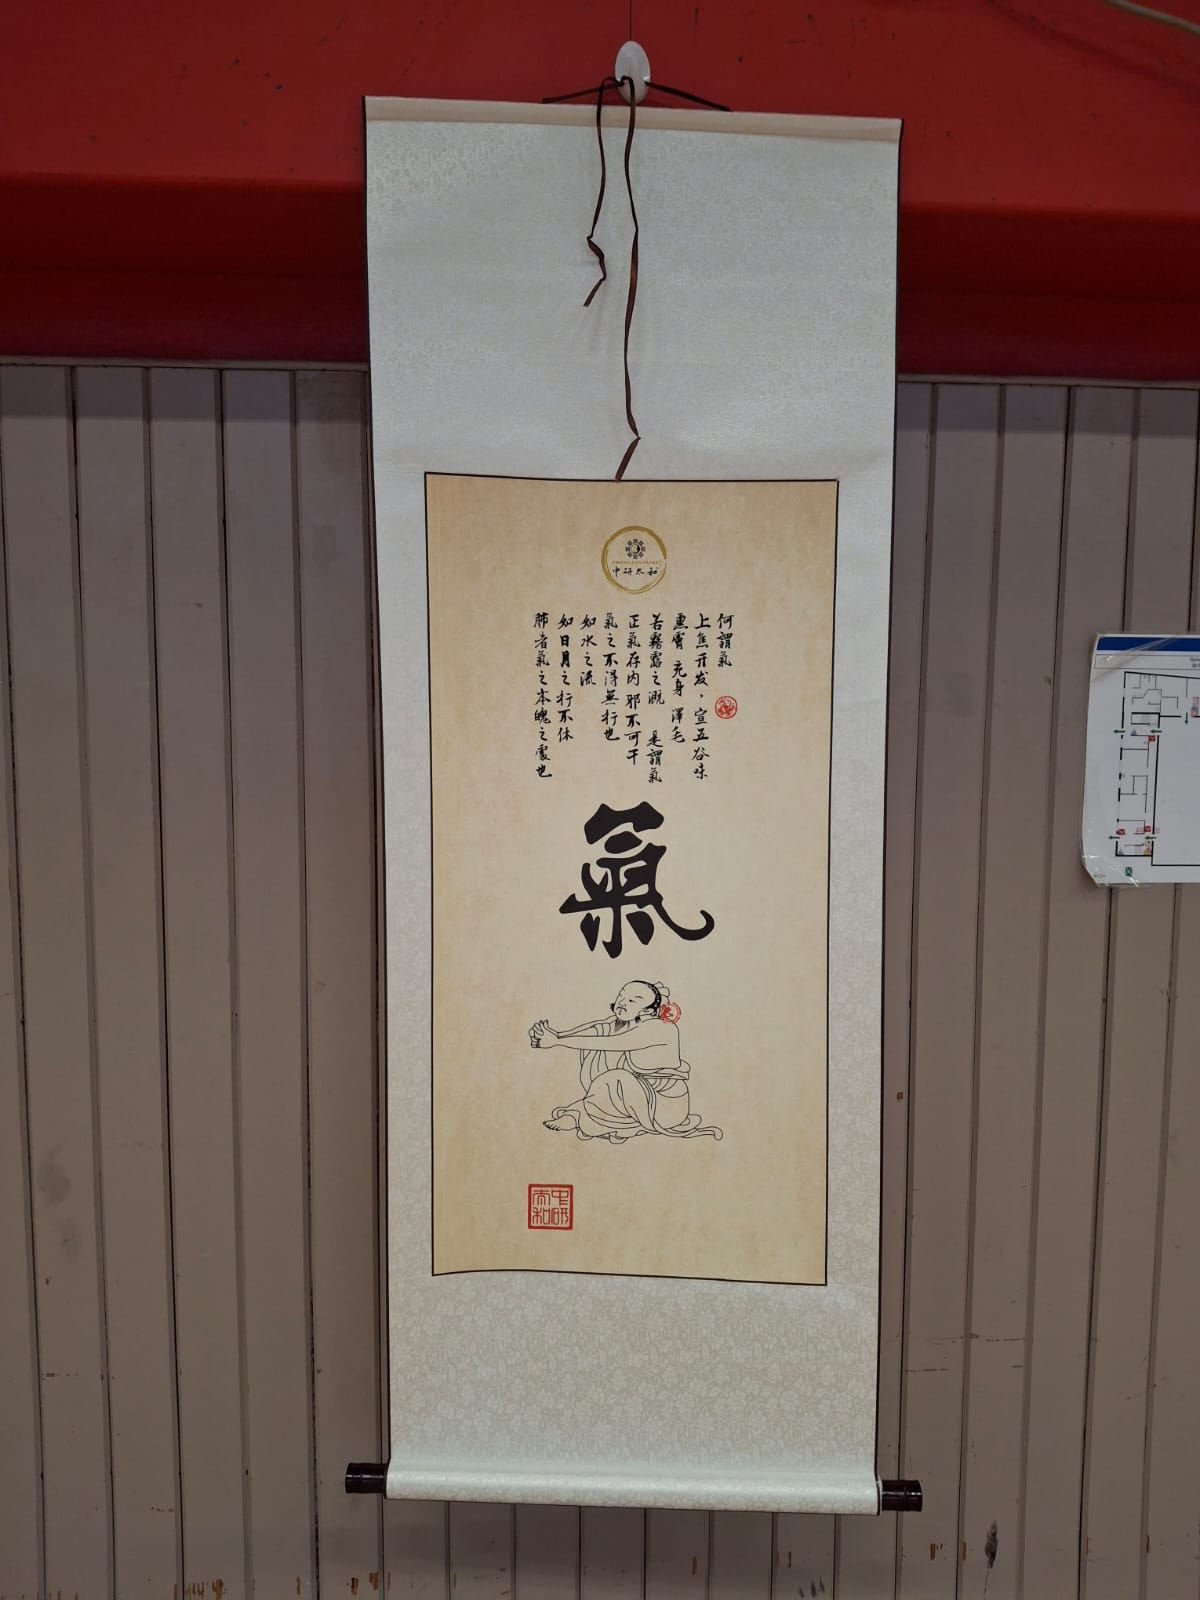 中研太和
何謂氣
上焦開发，宣五谷味
熏膚 充身 澤毛
若霧露之溉 是謂氣
正氣存内 邪不可干
氣之不得無行也
如水之流
如日月之行不休
肺者氣之本魄之處也
氣
中研
太和